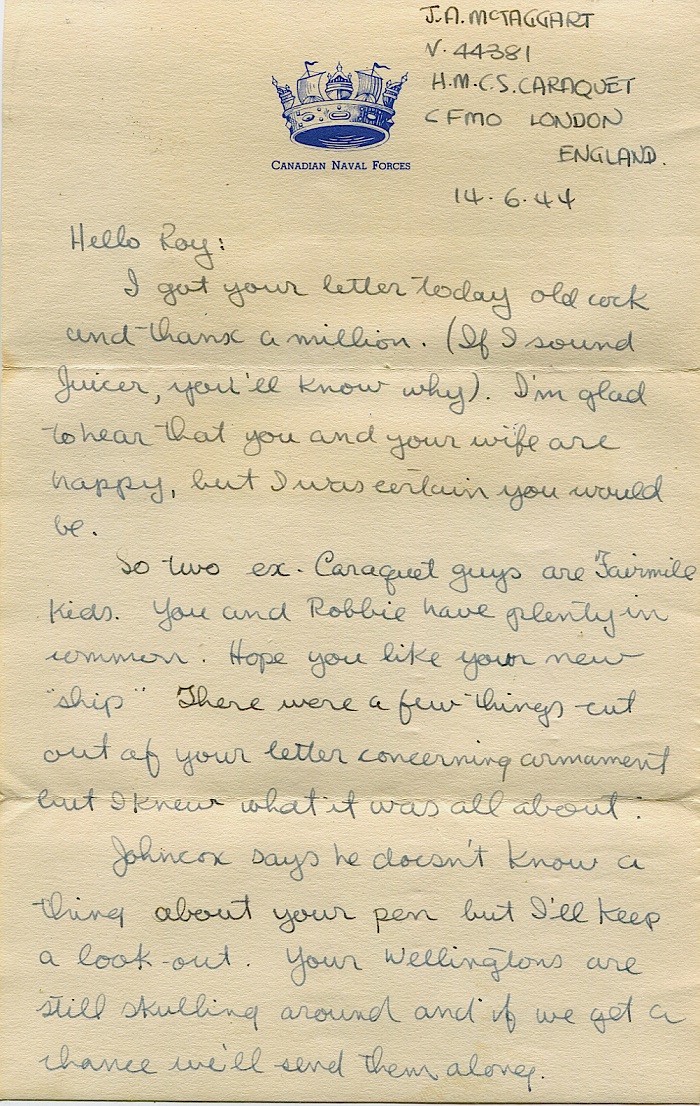 J.A. McTAGGART
V. 44381
H.M.C.S. CARAQUET
CFMO LONDON
ENGLAND.
CANADIAN NAVAL FORCES
14.6.44
Hello Roy:
I got your letter today old cock
and thanx a million. (If I sound
Juicer, you'll know why). I'm glad
to hear that you and your wife are
happy, but I was certain you would
be.
So two ex-Caraquet guys are Fairmile
Kids. You and Robbie have plenty in
common. Hope you like your new
"ship" There were a few things cut
out of your letter concerning armament
but I knew what it was all about.
Johncox says he doesn't know a
thing about your pen but I'll keep
a look-out. Your Wellingtons are
still skulling around and if we get a
chance we'll send them along.